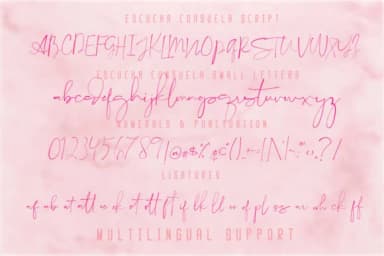 ESCUCHA CONSUELA SCRIPT
ABCDEFGHIJKLMNOPQRSTUVWXYZ
ESCUCHA CONSUELA SMALL LETTERS
abcdefghijklmnopqrstuvwxyz
NUMERALS & PUNCTUATION
0123456789!@#$%
LIGATURES
af ab at att ck ot ott ft if lk ll
MULTILINGUAL SUPPORT